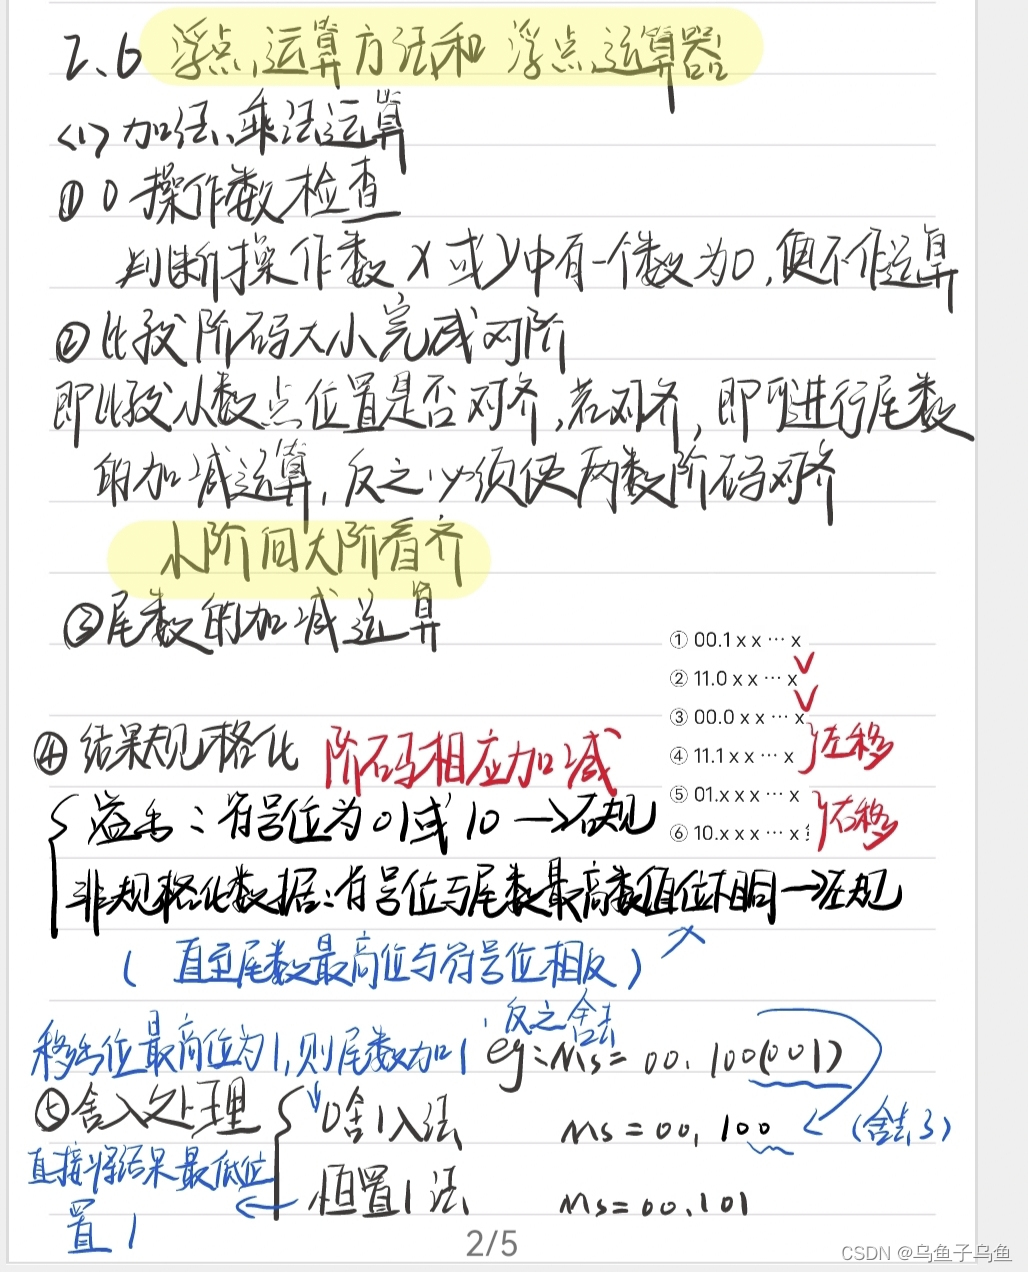 2、6 浮点运算方法和浮点运算器
<1> 加法、乘法运算
① 0操作数检查
判断操作数 X 或 Y 中有一个数为0,便不作运算
② 比较阶码大小完成对阶
即比较小数点位置是否对齐,若对齐,即可进行尾数
的加减运算,反之必须使两数阶码对齐
小阶向大阶看齐
③尾数的加减运算
① 00.1 x x ··· x
② 11.0 x x ··· x
③ 00.0 x x ··· x
④ 11.1 x x ··· x
左移
⑤ 01.x x x ··· x
⑥ 10.x x x ··· x
右移
④ 结果规格化 阶码相应加减
溢出:符号位为01或10→右规
非规格化数据:符号位与尾数最高数值位相同→左规
(直至尾数最高位与符号位相反)
移出位最高位为1,则尾数加1,反之舍去
eg:Ms = 00.100(001)
⑤舍入处理 0舍1入法 Ms = 00,100 (舍去了)
直接将结果最低位
置1
恒置1法 Ms=00.101
2/5
CSDN @乌鱼子乌鱼